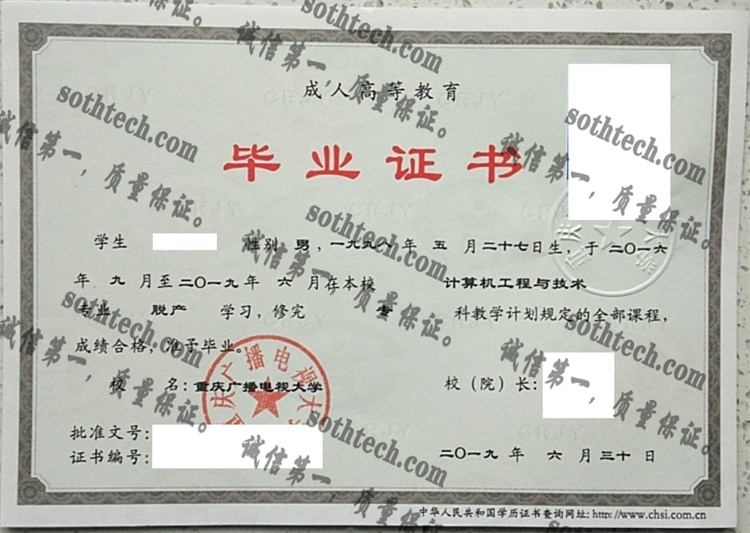 成人高等教育
毕业证书
学生 性别 男,一九九八年 五 月二十七日生,于二〇一六
年 九 月至二〇一九年 六 月在本校 计算机工程与技术
专业 脱产 学习,修完 专 科教学计划规定的全部课程,
成绩合格,准予毕业。
校 名:重庆广播电视大学 校(院)长:
批准文号:
证书编号: 二〇一九年 六 月三十日
中华人民共和国学历证书查询网址: http://www.chsi.com.cn
重庆广播电视大学
sothtech.com
诚信第一,质量保证。